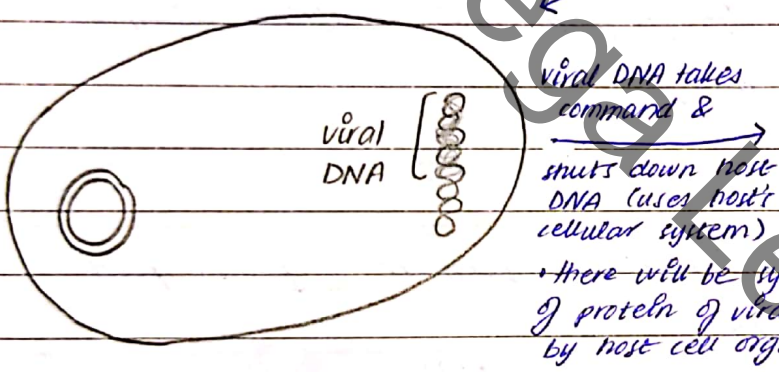 viral
DNA
viral DNA takes
command &
shuts down host
DNA (uses host's
cellular system)
• there will be sy
of protein of vira
by host cell orga